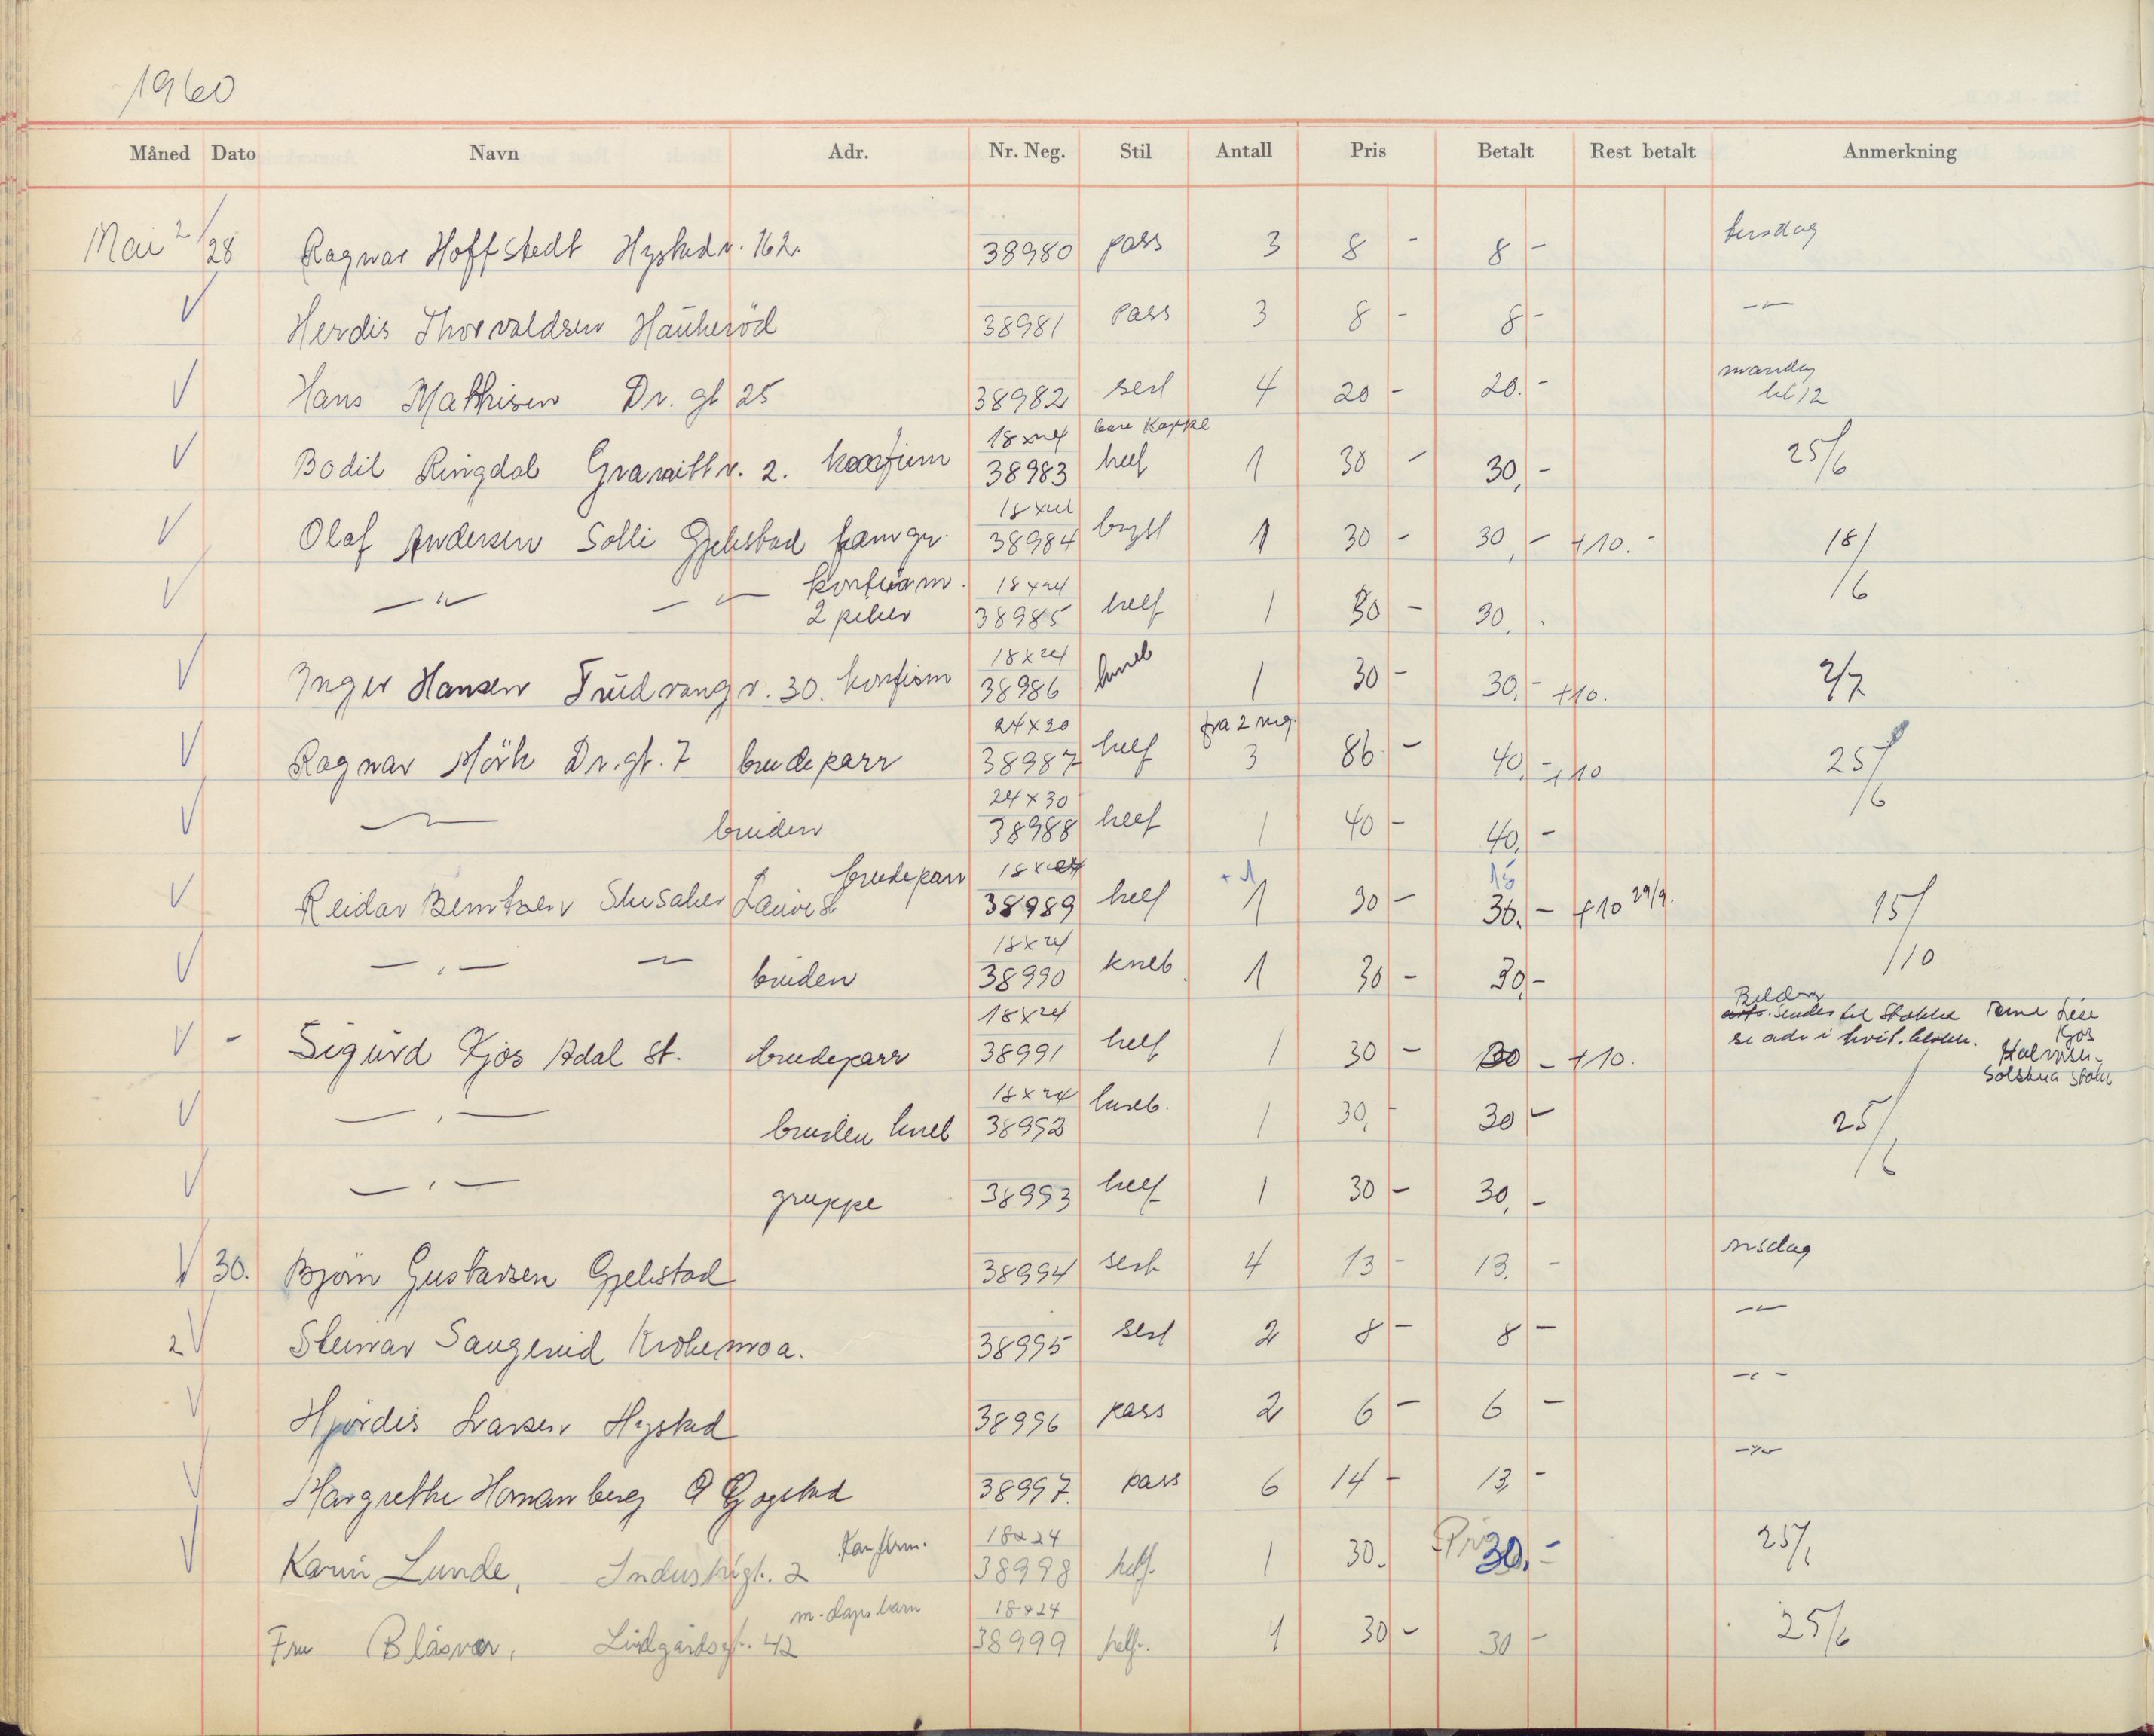 1960
Måned Dato Navn Adr. Nr. Neg. Stil Antall Pris Betalt Rest betalt Anmerkning
Mai 2/28 Ragnar Hoffstedt Hystadv. 162. 38980 pass 3 8 - 8 - tirsdag
Herdis Thorvaldsen Haukeröd 38981 pass 3 8 - 8 - -"-
Hans Mathisen Dr. gt 25 38982 serl 4 20 - 20. - mandag kl 12
Bodil Ringdal Granittv. 2. konfirm 18x24 38983 bare Kappe helf 1 30 - 30,- 25/6
Olaf Andersen Solli Gjekstad famgr. 18x24 38984 bryst 1 30 - 30,- +10.- 18/6
-"- -"- konfirm. 2 piker 18x24 38985 helf 1 30 - 30,
Inger Hansen Trudvangv. 30. konfirm 18x24 38986 kneb 1 30 - 30,- +10. 2/7
Ragnar Mörk Dr.gt. 7 brudeparr 24x30 38987 helf fra 2 neg. 3 86 - 40,- +10 25/6
-"- bruden 24x30 38988 helf 1 40 - 40,-
Reidar Berntsen Laurv st. brudeparr 18x24 38989 helf +1 1 30 - 15 30,- +10 29/9. 15/10
-"- -"- bruden 18x24 38990 kneb 1 30 - 30,-
- Sigurd Kjos Adal st. brudeparr 18x24 38991 helf 1 30 - 30 - +10. Bilder sendes til Stokke se adr i hvit. blokk.
-"- bruden kneb 18x24 38992 kneb. 1 30,- 30 - 25/6
-"- gruppe 38993 helf 1 30 - 30,-
30. Björn Gustavsen Gjekstad 38994 serl 4 13 - 13. - onsdag
2 Steinar Saugerud Krokemoa. 38995 serl 2 8 - 8 - -"-
Hjördis Larsen Hystad 38996 pass 2 6 - 6 - -"-
Margrethe Homanberg Ø Gogstad 38997. pass 6 14 - 13,- -"-
Karin Lunde, Industrigt. 2 Konfirm. 18x24 38998 helf. 1 30. 30,- 25/6
Fru Blåsvær, Lindgårdsgt. 42 m. dåpsbarn 18x24 38999 helf. 1 30 - 30 - 25/6